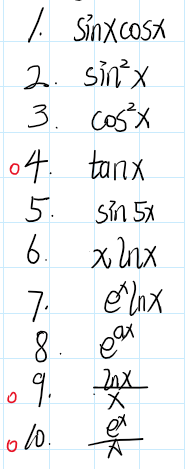 1. sinxcosx
2. sin²x
3. cos²x
o 4. tanx
5. sin 5x
6. x lnx
7. eˣlnx
8. eᵃˣ
o 9. lnx/x
o 10. eˣ/x